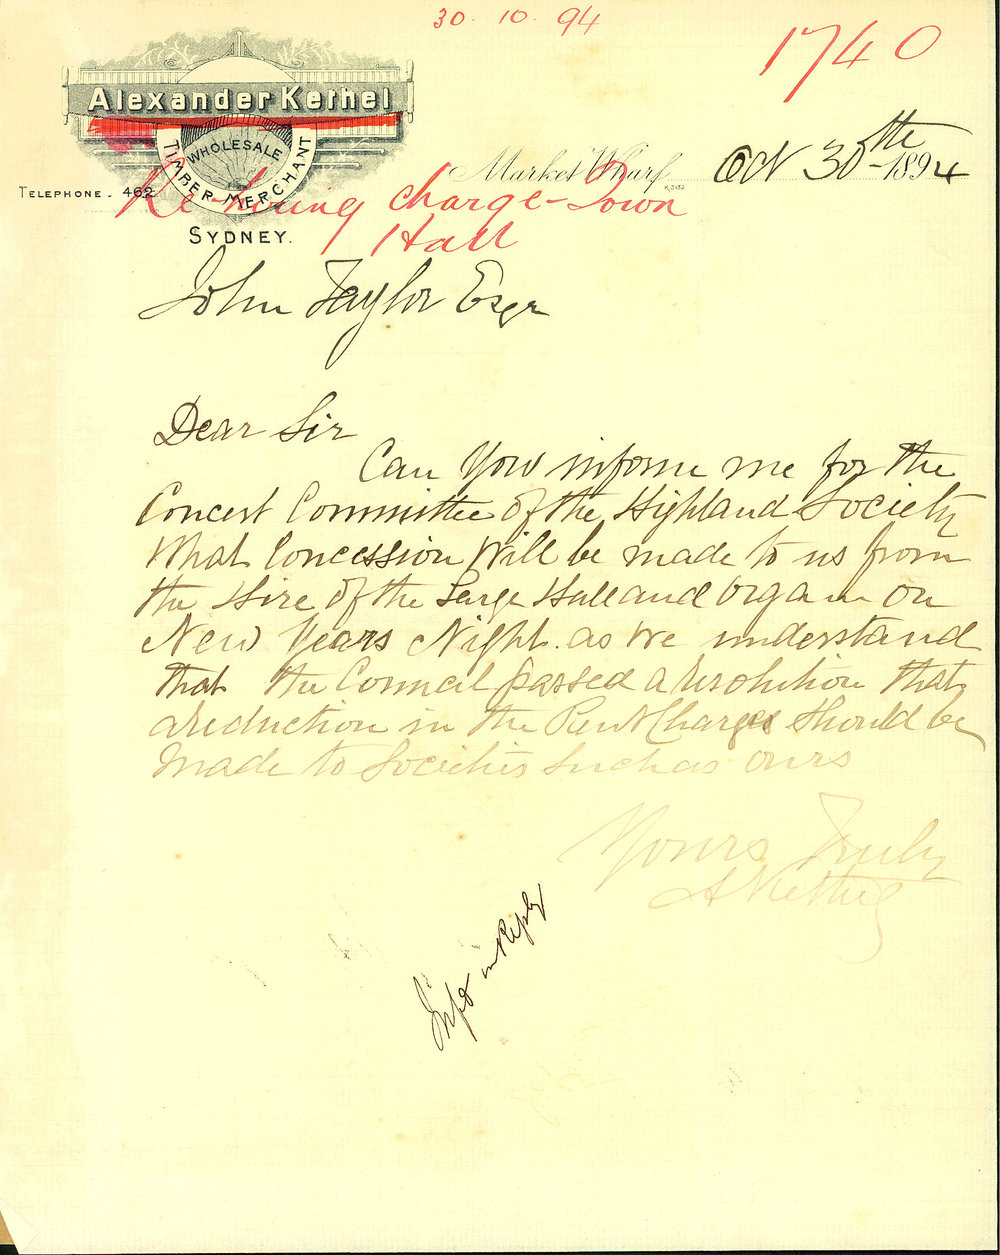 30.10.94
1740
Alexander Kethel
WHOLESALE
TIMBER MERCHANT
TELEPHONE. 462.
SYDNEY.
Market Wharf
Oct 30th 1894
charge - Town
Hall
John Taylor Esqr
Dear Sir
Can You inform me for the
Concert Committee of the Highland Society
What Concession Will be made to us from
the Hire of the Large Hall and Organ on
New Years Night. as We understand
that the Council passed a resolution that
a reduction in the Rent Charges Should be
Made to Societies Such as Ours
Yours Truly
A Kethel
in Reply